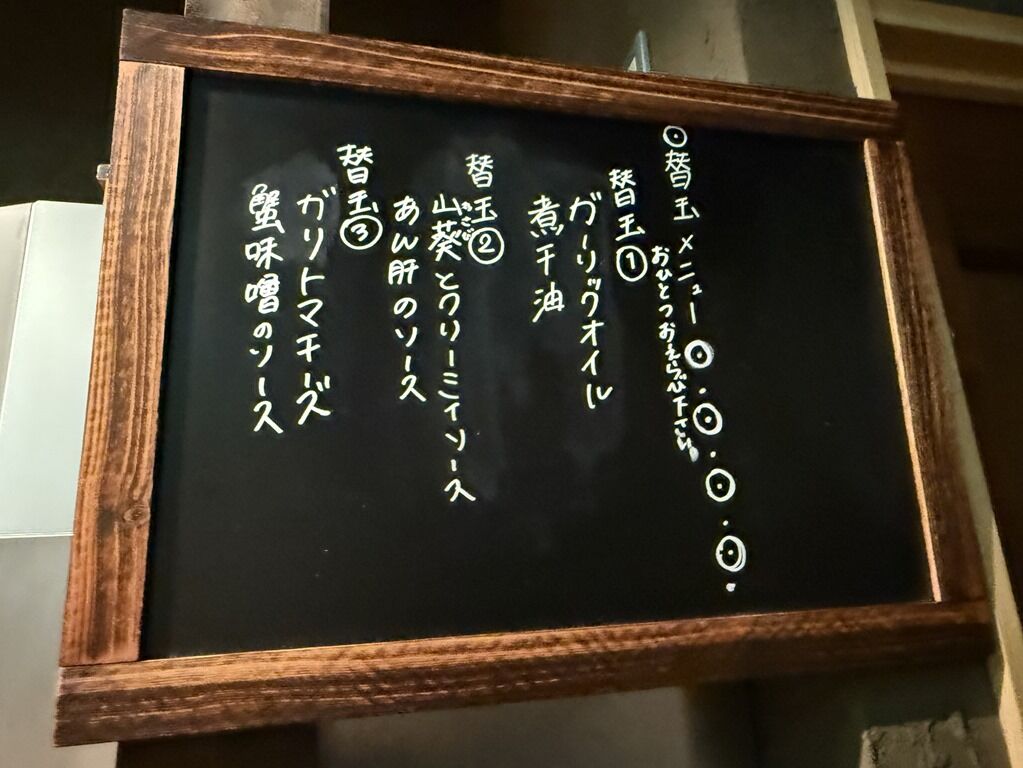 ◉替玉メニュー◉・◉・◉・◉・
おひとつおえらび下さい。
替玉①
ガーリックオイル
煮干油
替玉②
山葵とクリーミィソース
わさび
あん肝のソース
替玉③
ガリトマチーズ
蟹味噌のソース